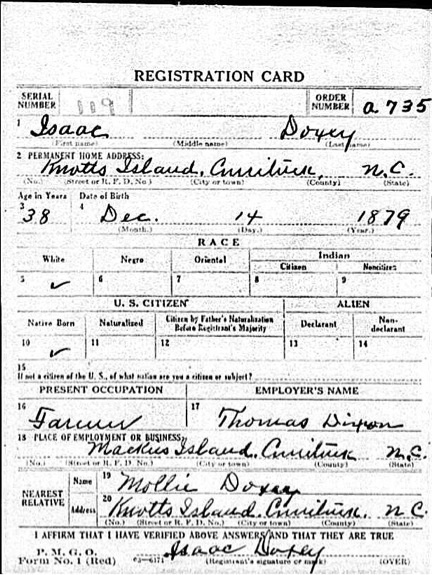 REGISTRATION CARD
SERIAL NUMBER 119 ORDER NUMBER a 735
1 Isaac Doxey
(First name) (Middle name) (Last name)
2 PERMANENT HOME ADDRESS:
Knotts Island, Currituck, N.C.
(No.) (Street or R. F. D. No.) (City or town) (County) (State)
Age in Years Date of Birth
3 38 4 Dec. 14 1879
(Month.) (Day.) (Year.)
RACE
White Negro Oriental Indian
Citizen Noncitizen
5 ✓ 6 7 8 9
U. S. CITIZEN ALIEN
Native Born Naturalized Citizen by Father's Naturalization Before Registrant's Majority Declarant Non-declarant
10 ✓ 11 12 13 14
15
If not a citizen of the U. S., of what nation are you a citizen or subject?
PRESENT OCCUPATION EMPLOYER'S NAME
16 Farmer 17 Thomas Dixon
18 PLACE OF EMPLOYMENT OR BUSINESS:
Island, Currituck N.C.
(No.) (Street or R. F. D. No.) (City or town) (County) (State)
NEAREST RELATIVE Name 19 Mollie Doxey
Address 20 Knotts Island, Currituck, N.C.
(No.) (Street or R. F. D. No.) (City or town) (County) (State)
I AFFIRM THAT I HAVE VERIFIED ABOVE ANSWERS AND THAT THEY ARE TRUE
P. M. G. O.
Form No. 1 (Red) Isaac Doxey
(Registrant's signature or mark) (OVER)